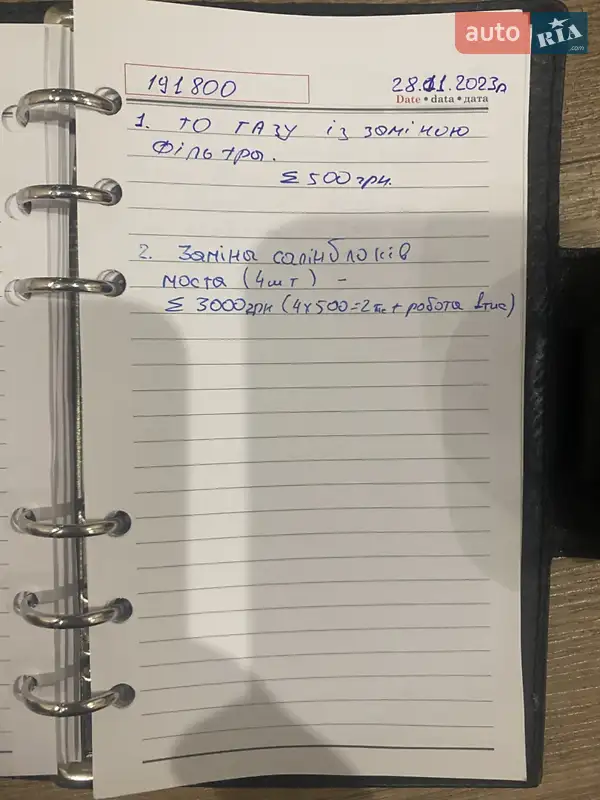 auto RIA .com
191800
28.01.2023р
Date • data • дата
1. ТО ГАЗУ ІЗ ЗАМІНОЮ
ФІЛЬТРА.
Σ 500 грн.
2. Заміна салінблоків
моста (4шт) –
Σ 3000 грн (4х500=2тис + робота 1тис)